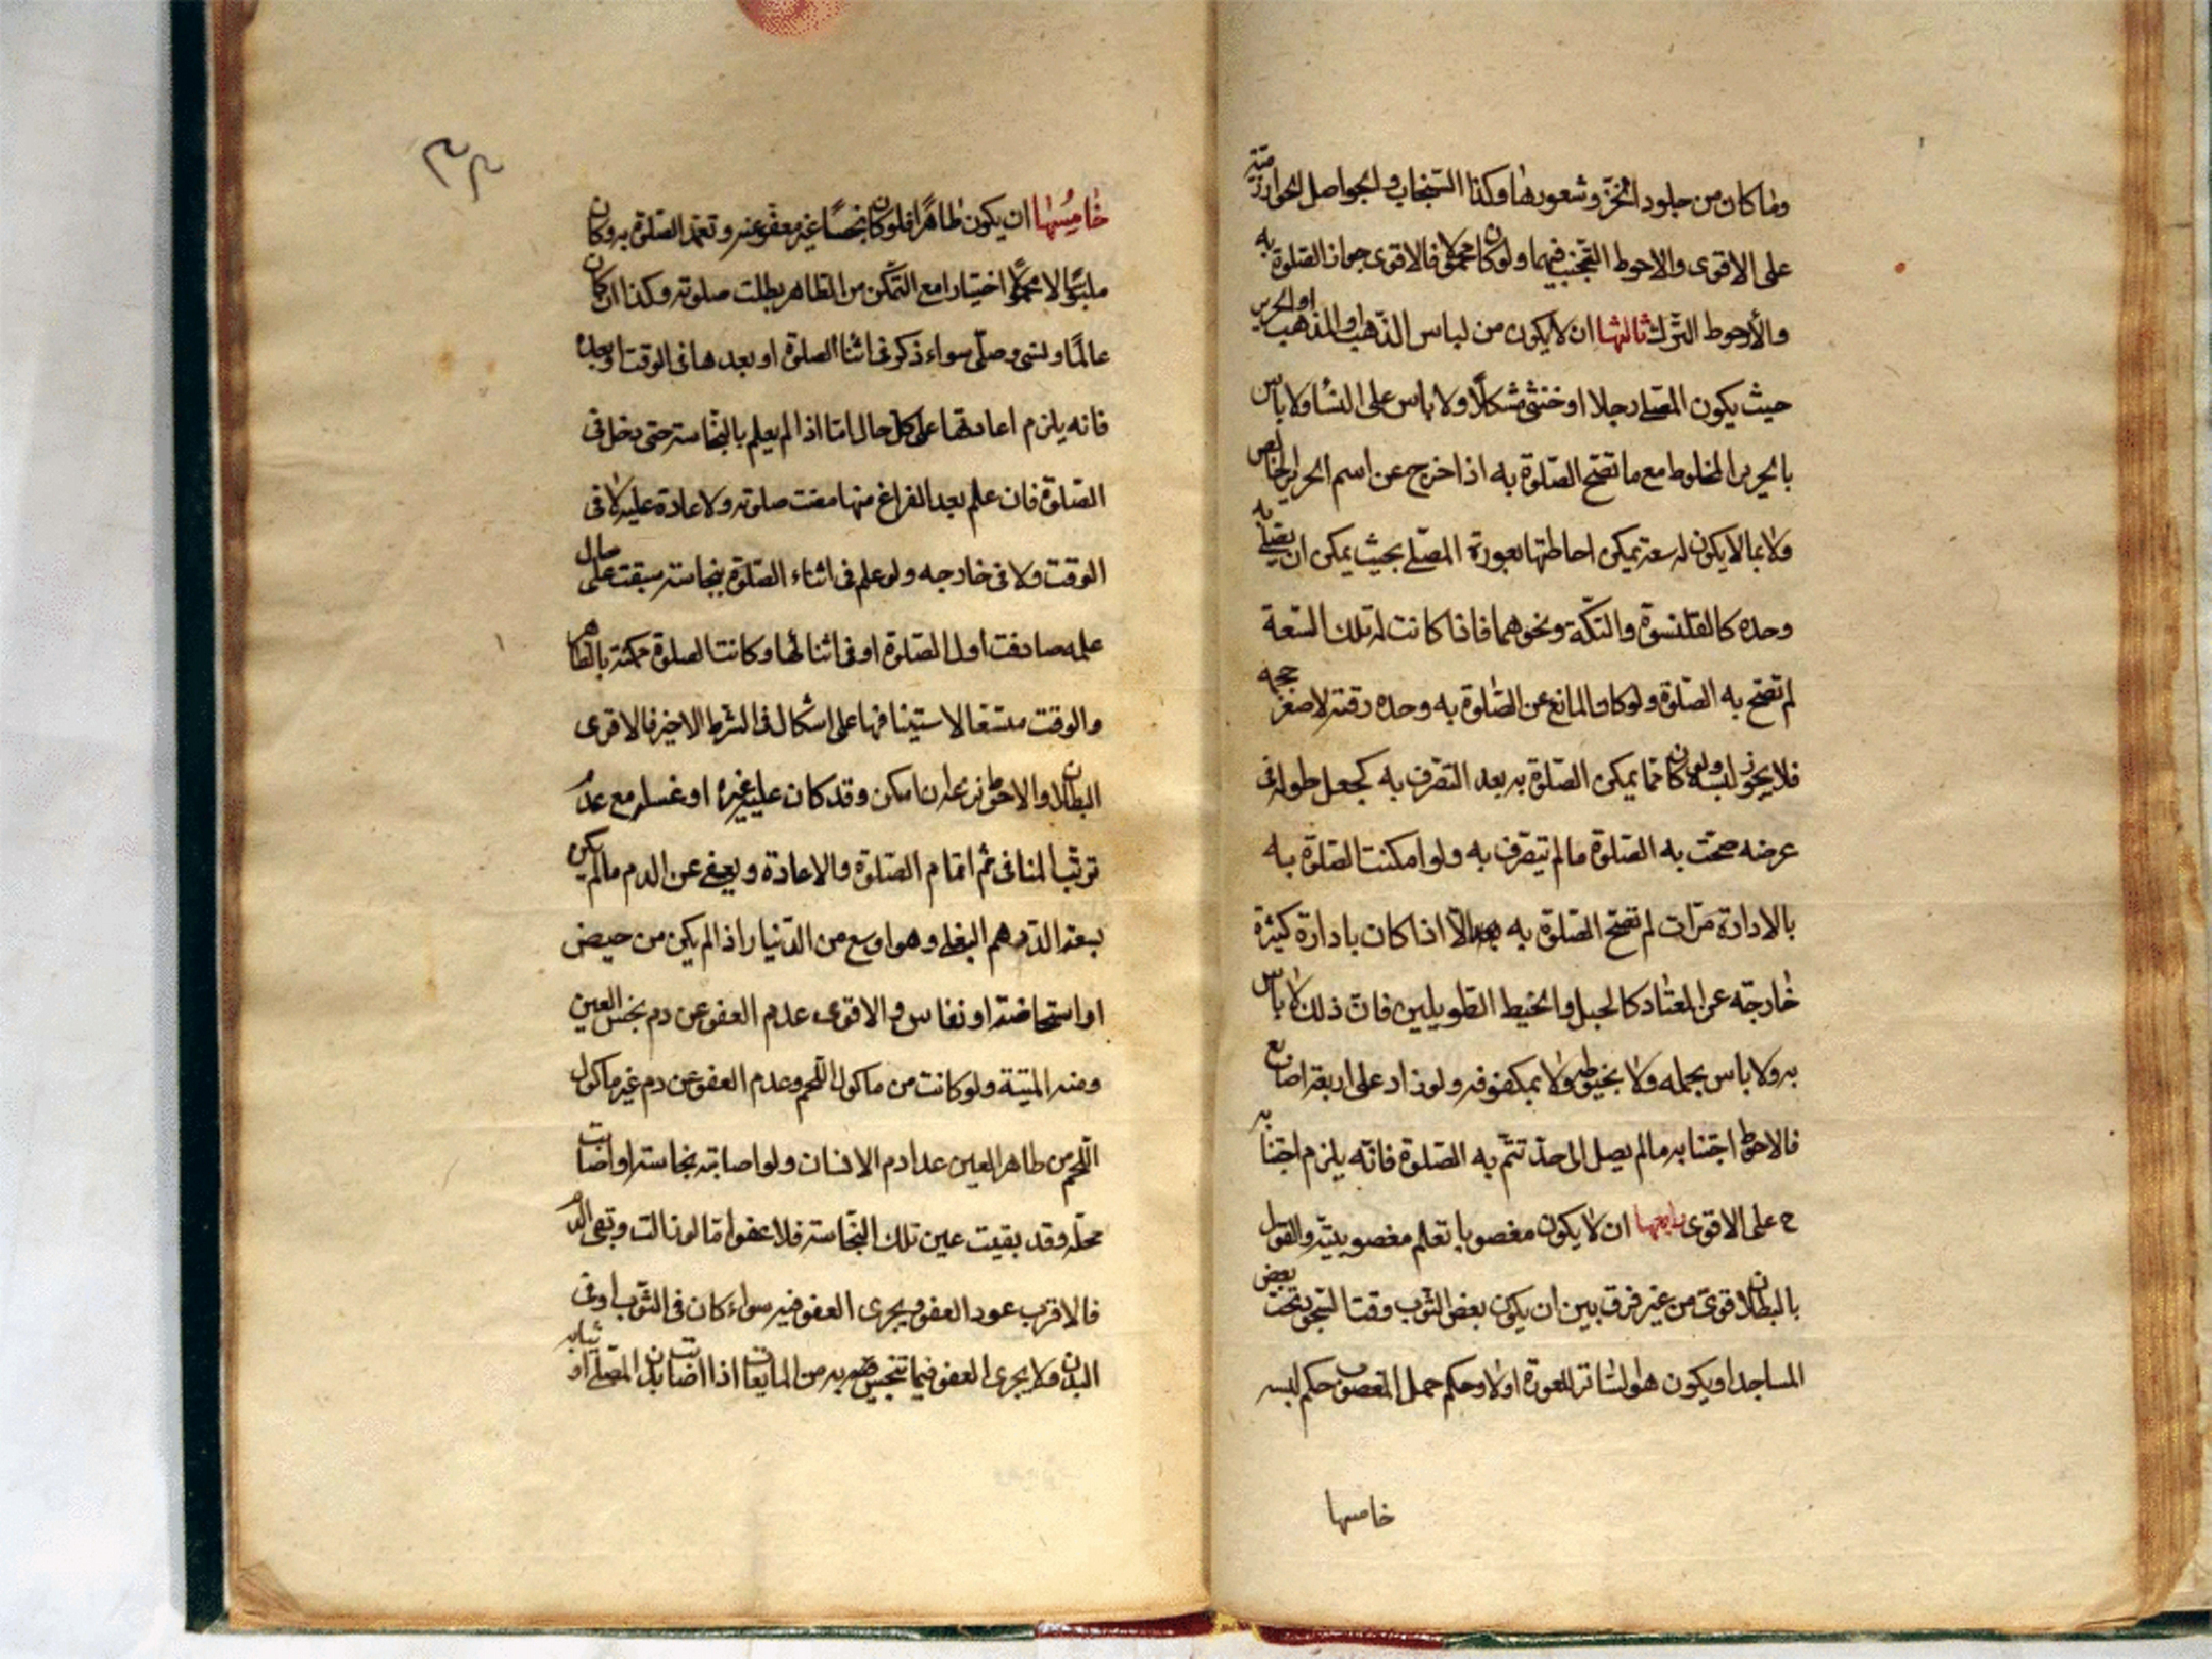 وما كان من جلود الخز وشعورها وكذا السنجاب والحواصل الخوارزميّة
على الاقوى والاحوط التجنب فيهما ولو كان محمولا فالاقوى جواز الصلوة به
والأحوط الترك ثالثها ان لا يكون من لباس الذهب او المذهب او الحرير
حيث يكون المصلي رجلا او خنثى مشكلاً ولا باس على النسا ولا باس
بالحرير المخلوط مع ما تصح الصلوة به اذا خرج عن اسم الحرير الخالص
ولا بما لا يكون له سعة يمكن احاطتها بعورة المصلي بحيث يمكن ان يصلي به
وحده كالقلنسوة والتكّة ونحوهما فاذا كانت له تلك السعة
لم تصح به الصلوة ولو كان المانع عن الصّلوة به وحده رقته لا صغر حجمه
فلا يجوز لبسه ولو كان مما يمكن الصلوة به بعد التصرف به كجعل طوله في
عرضه صحت به الصلوة ما لم يتصرف به ولو امكنت الصلوة به
بالادارة مرّات لم تصح الصلوة به الّا اذا كان بادارة كثيرة
خارجة عن المعتاد كالحبل والخيط الطويلين فانّ ذلك لا باس
به ولا باس بحمله ولا بخيوطه ولا بمكفوفه ولو زاد على اربعة اصابع
فالاحوط اجتنابه ما لم يصل الى حدّ تتمّ به الصلوة فانّه يلزم اجتنابه
ح على الاقوى رابعها ان لا يكون مغصوبا تعلم مغصوبيته والقول
بالبطلان قوي من غير فرق بين ان يكون بعض الثوب وقت السجود تحت بعض
المساجد او يكون هو الساتر للعورة او لا وحكم حمل المغصوب حكم لبسه
خامسها
خامسُها ان يكون طاهرًا فلو كان نجسًا غير معفو عنه وتعمّد الصّلوة به وكان
ملبوسًا لا محمولًا اختيارا مع التمكّن من الطاهر بطلت صلوته وكذا ان كان
عالمًا ونسي وصلّى سواء ذكر في اثنا الصلوة او بعدها في الوقت او بعده
فانه يلزم اعادتها على كل حال امّا اذا لم يعلم بالنجاسة حتى دخل في
الصّلوة فان علم بعد الفراغ منها مضت صلوته ولا اعادة عليه لا في
الوقت ولا في خارجه ولو علم في اثناء الصّلوة بنجاسة سبقت على حال
علمه صادفت اول الصلوة او في اثنائها وكانت الصلوة ممكنة بالطاهر
والوقت متسعا لاستينافها على اشكال في الشرط الاخير فالاقوى
البطلان والاحوط نزعه ان امكن وقد كان عليه غيره او غسله مع عدم
ترتّب المنافي ثم اتمام الصّلوة والاعادة ويعفى عن الدم ما لم يكن
بسعة الدّرهم البغلي وهو اوسع من الدّينار اذا لم يكن من حيض
او استحاضة او نفاس والاقوى عدم العفو عن دم نجس العين
ومنه الميتة ولو كانت من ماكول اللّحم وعدم العفو عن دم غير ماكول
اللّحم من طاهر العين عدا دم الانسان ولو اصابته نجاسة او اصابت
محلّه وقد بقيت عين تلك النّجاسة فلا عفو امّا لو زالت وبقي الدم
فالاقرب عود العفو ويجري العفو فيه سواء كان في الثوب او في
البدن ولا يجري العفو فيما تنجّس به من المايعات اذا اصابت بدن المصلّي او ثيابه